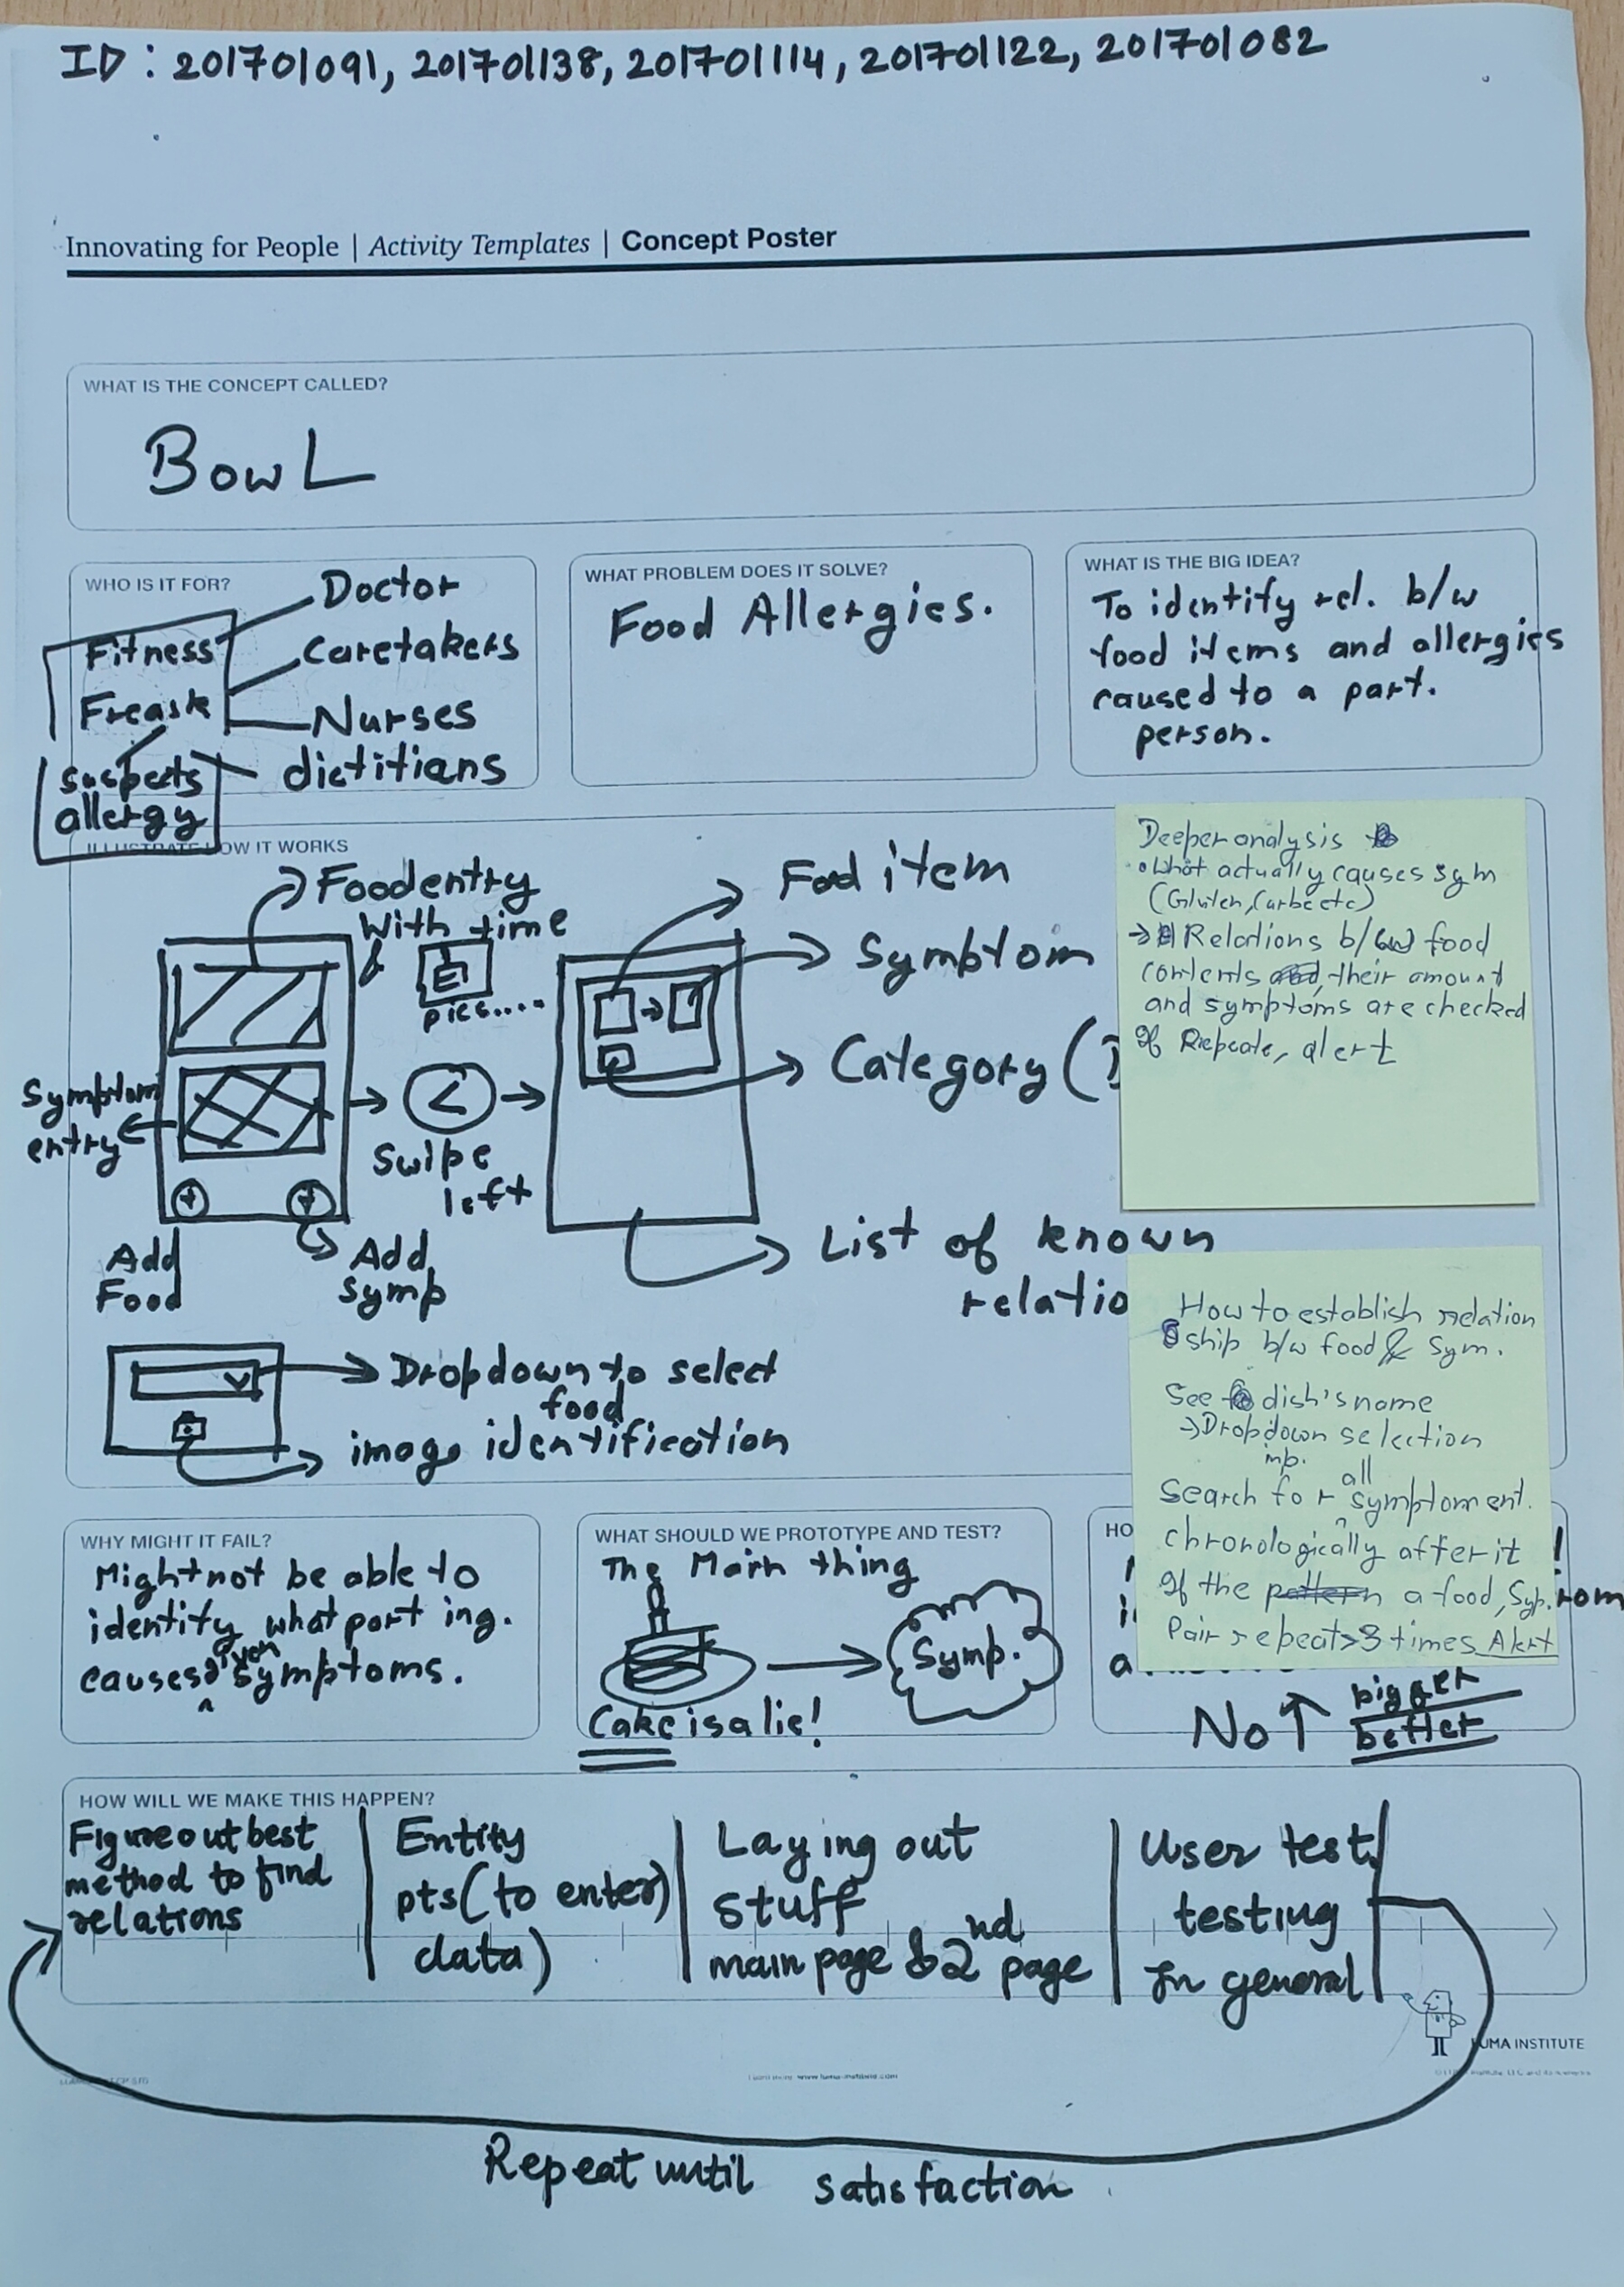 ID : 201701091, 201701138, 201701114, 201701122, 201701082
Innovating for People | Activity Templates | Concept Poster
WHAT IS THE CONCEPT CALLED?
BowL
WHO IS IT FOR?
Fitness
Freask
Suspects
allergy
Doctor
Caretakers
Nurses
dietitians
WHAT PROBLEM DOES IT SOLVE?
Food Allergies.
WHAT IS THE BIG IDEA?
To identify rel. b/w
food items and allergies
caused to a part.
person.
ILLUSTRATE HOW IT WORKS
Food entry
With time
pics....
Symptom
entry
Swipe
left
Add
Food
Add
Symp
Food item
Symptom
Category (
List of known
relatio
Dropdown to select
food
image identification
Deeper analysis
• What actually causes sym
(Gluten, Carbs etc)
→ Relations b/w food
contents their amount
and symptoms are checked
If Repeate, alert
How to establish relation
ship b/w food & Sym.
See dish's name
→ Dropdown selection
inp.
all
Search for symptom ent.
chronologically after it
If the pattern a food, Syp.
Pair repeat >3 times Alert
WHY MIGHT IT FAIL?
Might not be able to
identify what part ing.
given
causes symptoms.
WHAT SHOULD WE PROTOTYPE AND TEST?
The Main thing
Symp.
Cake is a lie!
HO
!
rom
No ↑ bigger
better
HOW WILL WE MAKE THIS HAPPEN?
Figure out best
method to find
relations
Entity
pts (to enter)
data)
Laying out
stuff
main page & 2nd page
User test
testing
In general
LUMA INSTITUTE
Repeat until satisfaction